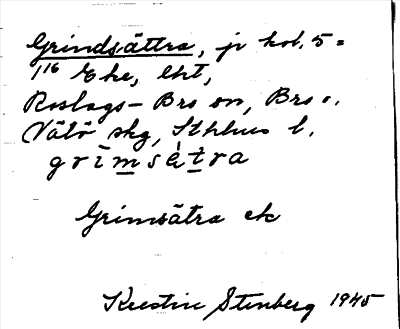 Grindsättra, jr kol. 5 =
1/16 Eke, lht,
Roslags-Bro sn, Bro o.
Vätö skg, Sthlms l.
grìmsètra
Grimsätra ek
Kerstin Stenberg 1945